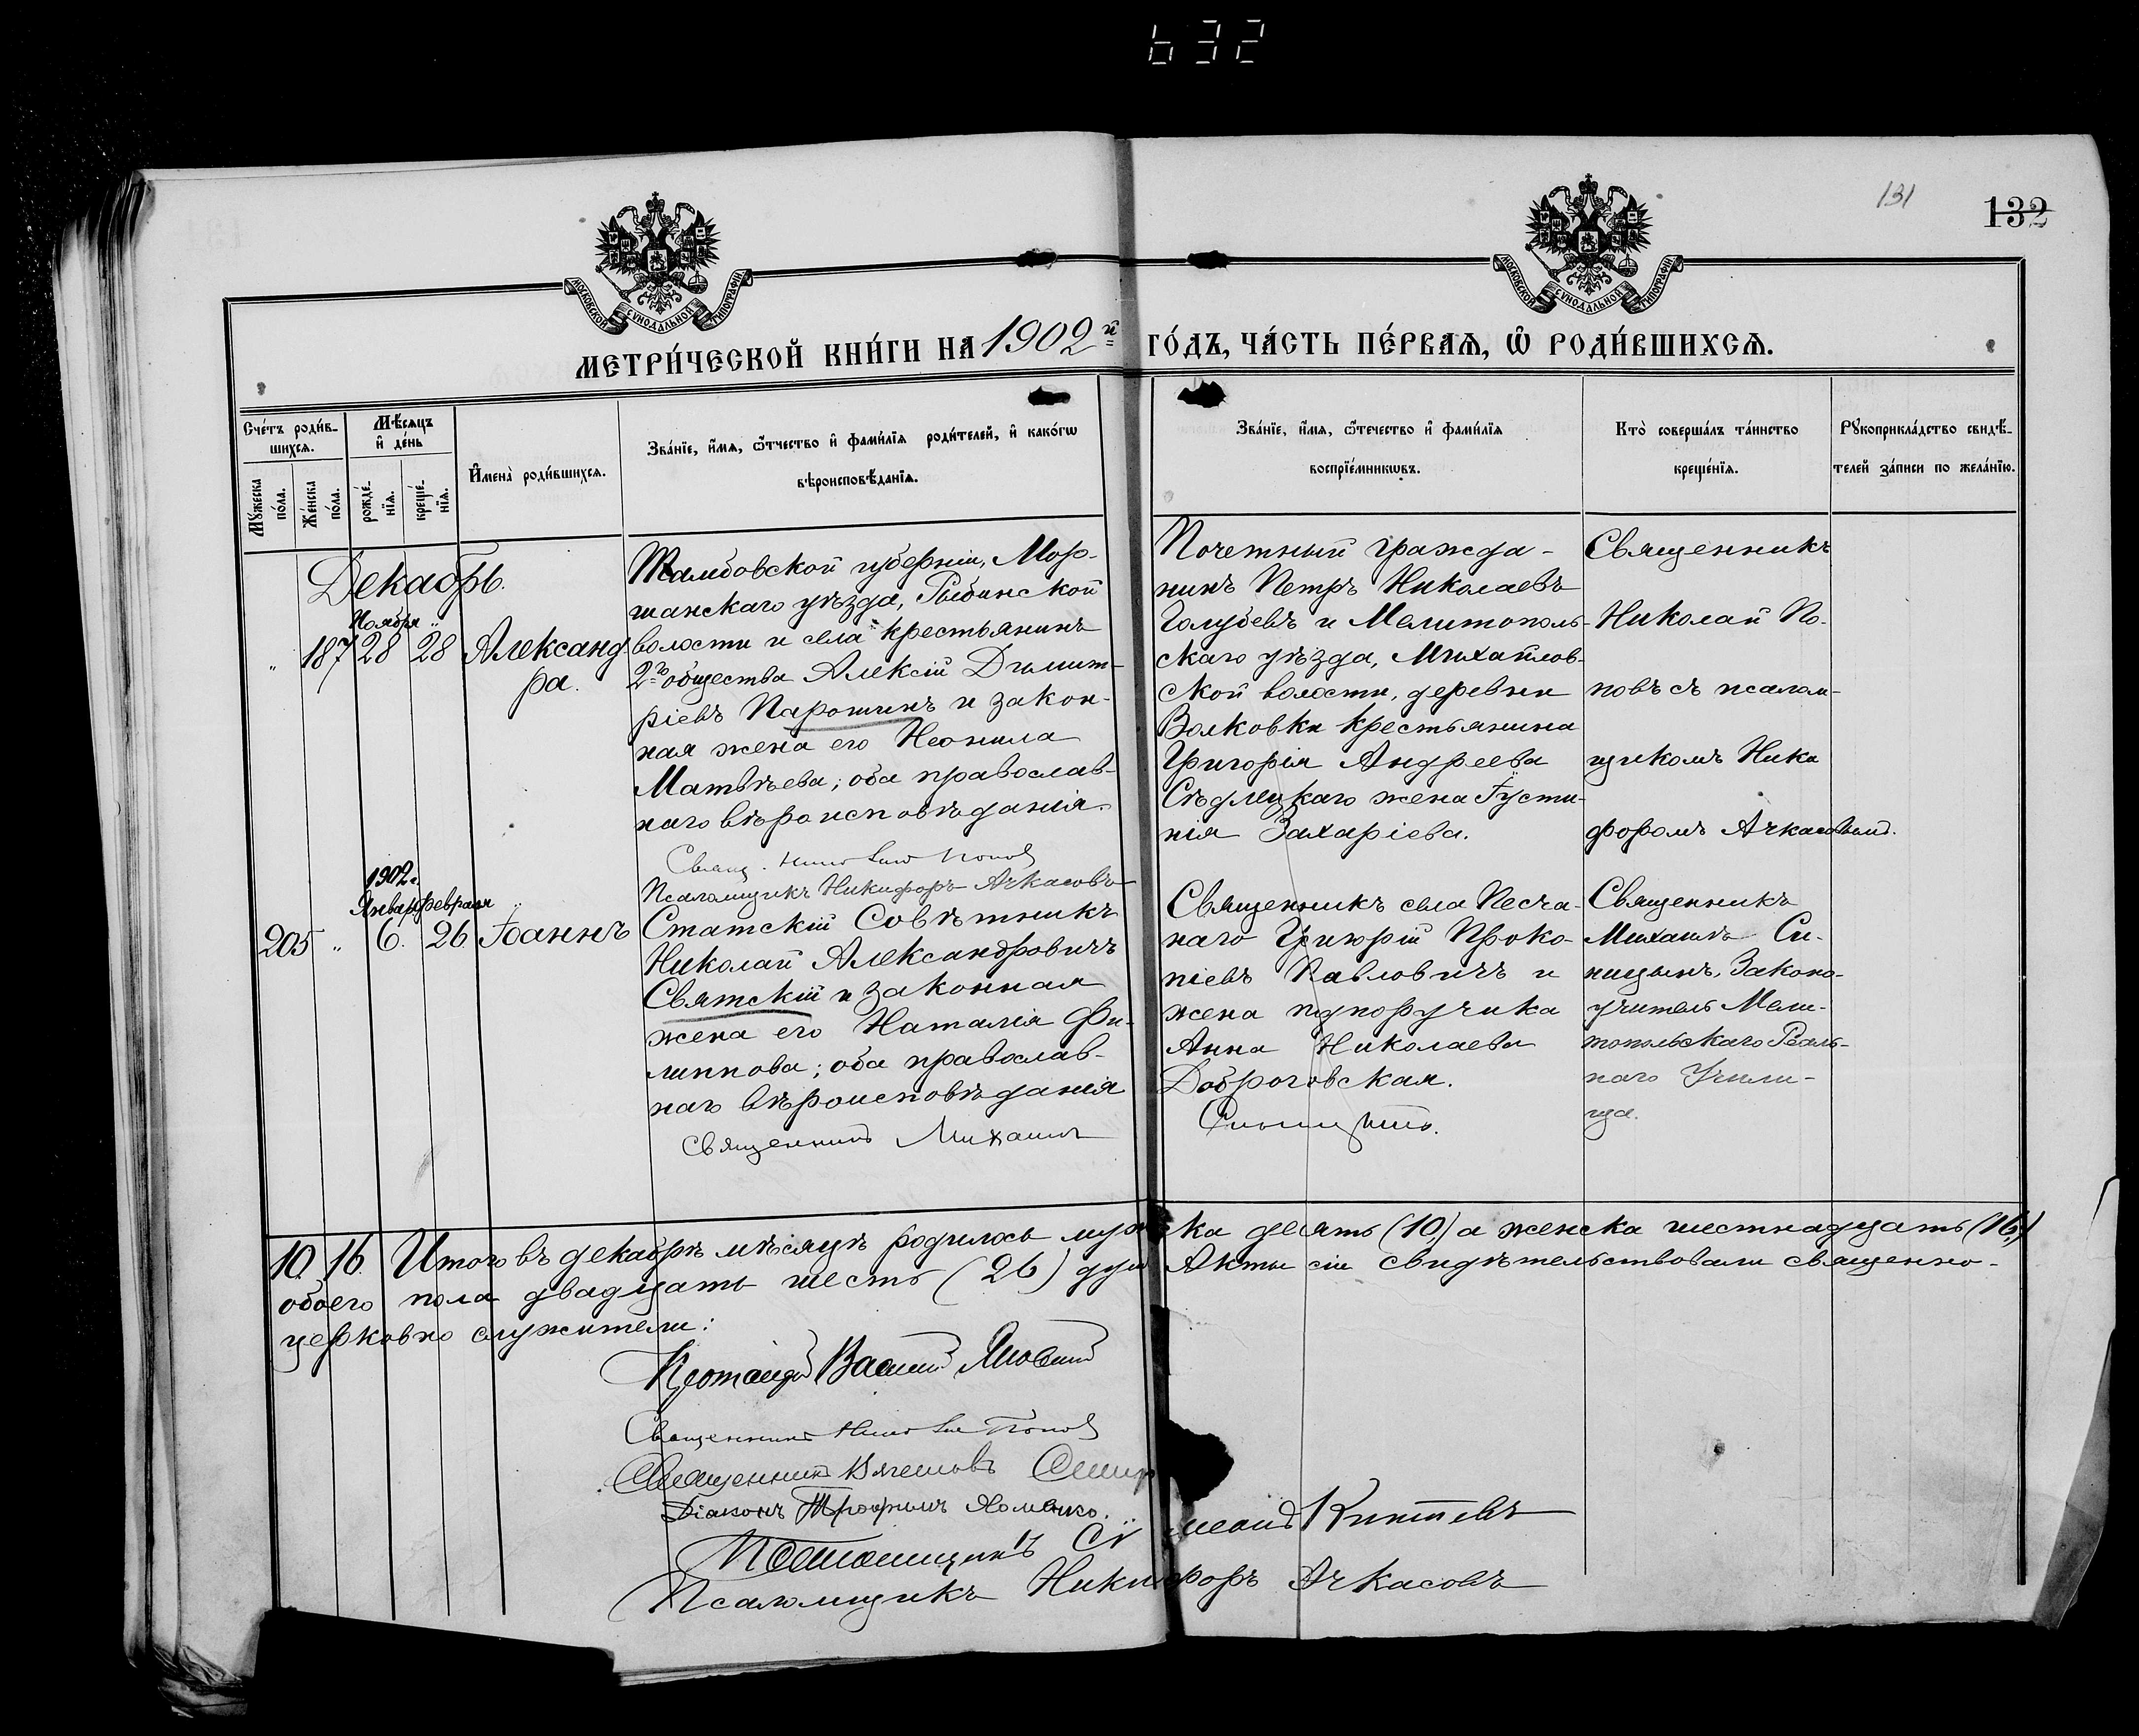 632
131
132
МОСКОВСКОЙ СУНОДАЛЬНОЙ ТИПОГРАФІИ
МОСКОВСКОЙ СУНОДАЛЬНОЙ ТИПОГРАФІИ
МЕТРИ́ЧЕСКОЙ КНИ́ГИ НА 1902й ГО́ДЪ, ЧА́СТЬ ПЕ́РВАѦ, Ѿ РОДИ́ВШИХСѦ.
Сче́тъ роди́в-
шихсѧ.
Мꙋ́жеска по́ла.
Же́нска по́ла.
Мѣ́сѧцъ и҆ де́нь
рожде́-нїѧ.
креще́-нїѧ.
И҆мена̀ роди́вшихсѧ.
Зва́нїе, и҆́мѧ, ѻ҆́тчество и҆ фами́лїѧ роди́телей, и҆ како́гѡ
вѣроисповѣ́данїѧ.
Зва́нїе, и҆́мѧ, ѻ҆́течество и҆ фами́лїѧ
воспрїе́мникѡвъ.
Кто̀ соверша́лъ та́инство
креще́нїѧ.
Рꙋкоприкла́дство свидѣ́-
телей за́писи по жела́нїю.
Декабрь.
Ноября "
" 187 28 28 Александ-
ра.
Тамбовской губерніи, Мор-
шанскаго уѣзда, Рыбинской
волости и села крестьянинъ
2го общества Алексій Дими́т-
ріевъ Парошинъ и закон-
ная жена его Неонила
Матвѣева; оба православ-
наго вѣроисповѣданія.
Свящ. Николай Попов
Псаломщикъ Никифоръ Ачкасовъ
Почетный гражда-
нинъ Петръ Николаевъ
Голубевъ и Мелитополь-
скаго уѣзда, Михайлов-
ской волости, деревни
Волковки крестьянина
Григорія Андреева
Сѣдлецкаго жена Іусти-
нія Захаріева.
Священникъ
Николай По-
повъ съ псалом-
щикомъ Ники
форомъ Ачкасовым.
1902г.
Январ Февраля "
205 " 6. 26. Іоаннъ
Статскій Совѣтникъ
Николай Александровичъ
Святскій и законная
жена его Наталія Фи-
липпова; оба православ-
наго вѣроисповѣданія
Священникъ Михаилъ
Священникъ села Песча-
наго Григорій Проко-
піевъ Павловичъ и
жена подпоручика
Анна Николаева
Доброговская.
Синицынъ.
Священникъ
Михаилъ Си-
ницынъ, Законо-
учитель Мели-
топольскаго Реаль-
наго Учили-
ща.
10. 16. Итого въ декабрѣ мѣсяцѣ родилось мужска десять (10) а женска шестнадцать (16)
обоего пола двадцать шесть (26) душ Акты сіи свидѣтельствовали священно-
церковно служители:
Протоіерей Василій
Священникъ Николай Попов
Священникъ Вячеславъ
Діаконъ Трофимъ Хоменко.
Псаломщикъ
Псаломщикъ Никифоръ Ачкасовъ